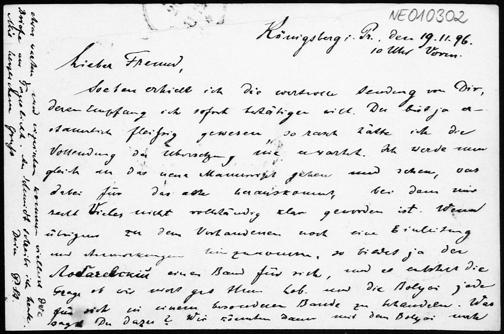 NE010302
Königsberg i. Pr., den 19. 11. 96.
10 Uhr Vorm.
Lieber Freund,
Soeben erhielt ich die wertvolle Sendung von Dir,
deren Empfang ich sofort bestätigen will. Du bist ja er-
staunlich fleißig gewesen, so rasch hätte ich die
Vollendung der Übersetzung nie erwartet. Ich werde nun
gleich an das neue Manuscript gehen und sehen, was
dabei für das alte herauskommt, bei dem mir
recht Vieles nicht vollständig klar geworden ist. Wenn
übrigens zu dem Vorhandenen noch eine Einleitung
und Anmerkungen hinzukommen, so bildet ja der
Лобачевский einen Band für sich, und es entsteht die
Frage, ob wir nicht gut thun, ihn und die Bolyai jeder
für sich in einem besonderen Bande zu behandeln. Was
sagst Du dazu? Wir könnten dann mit den Bolyai mehr